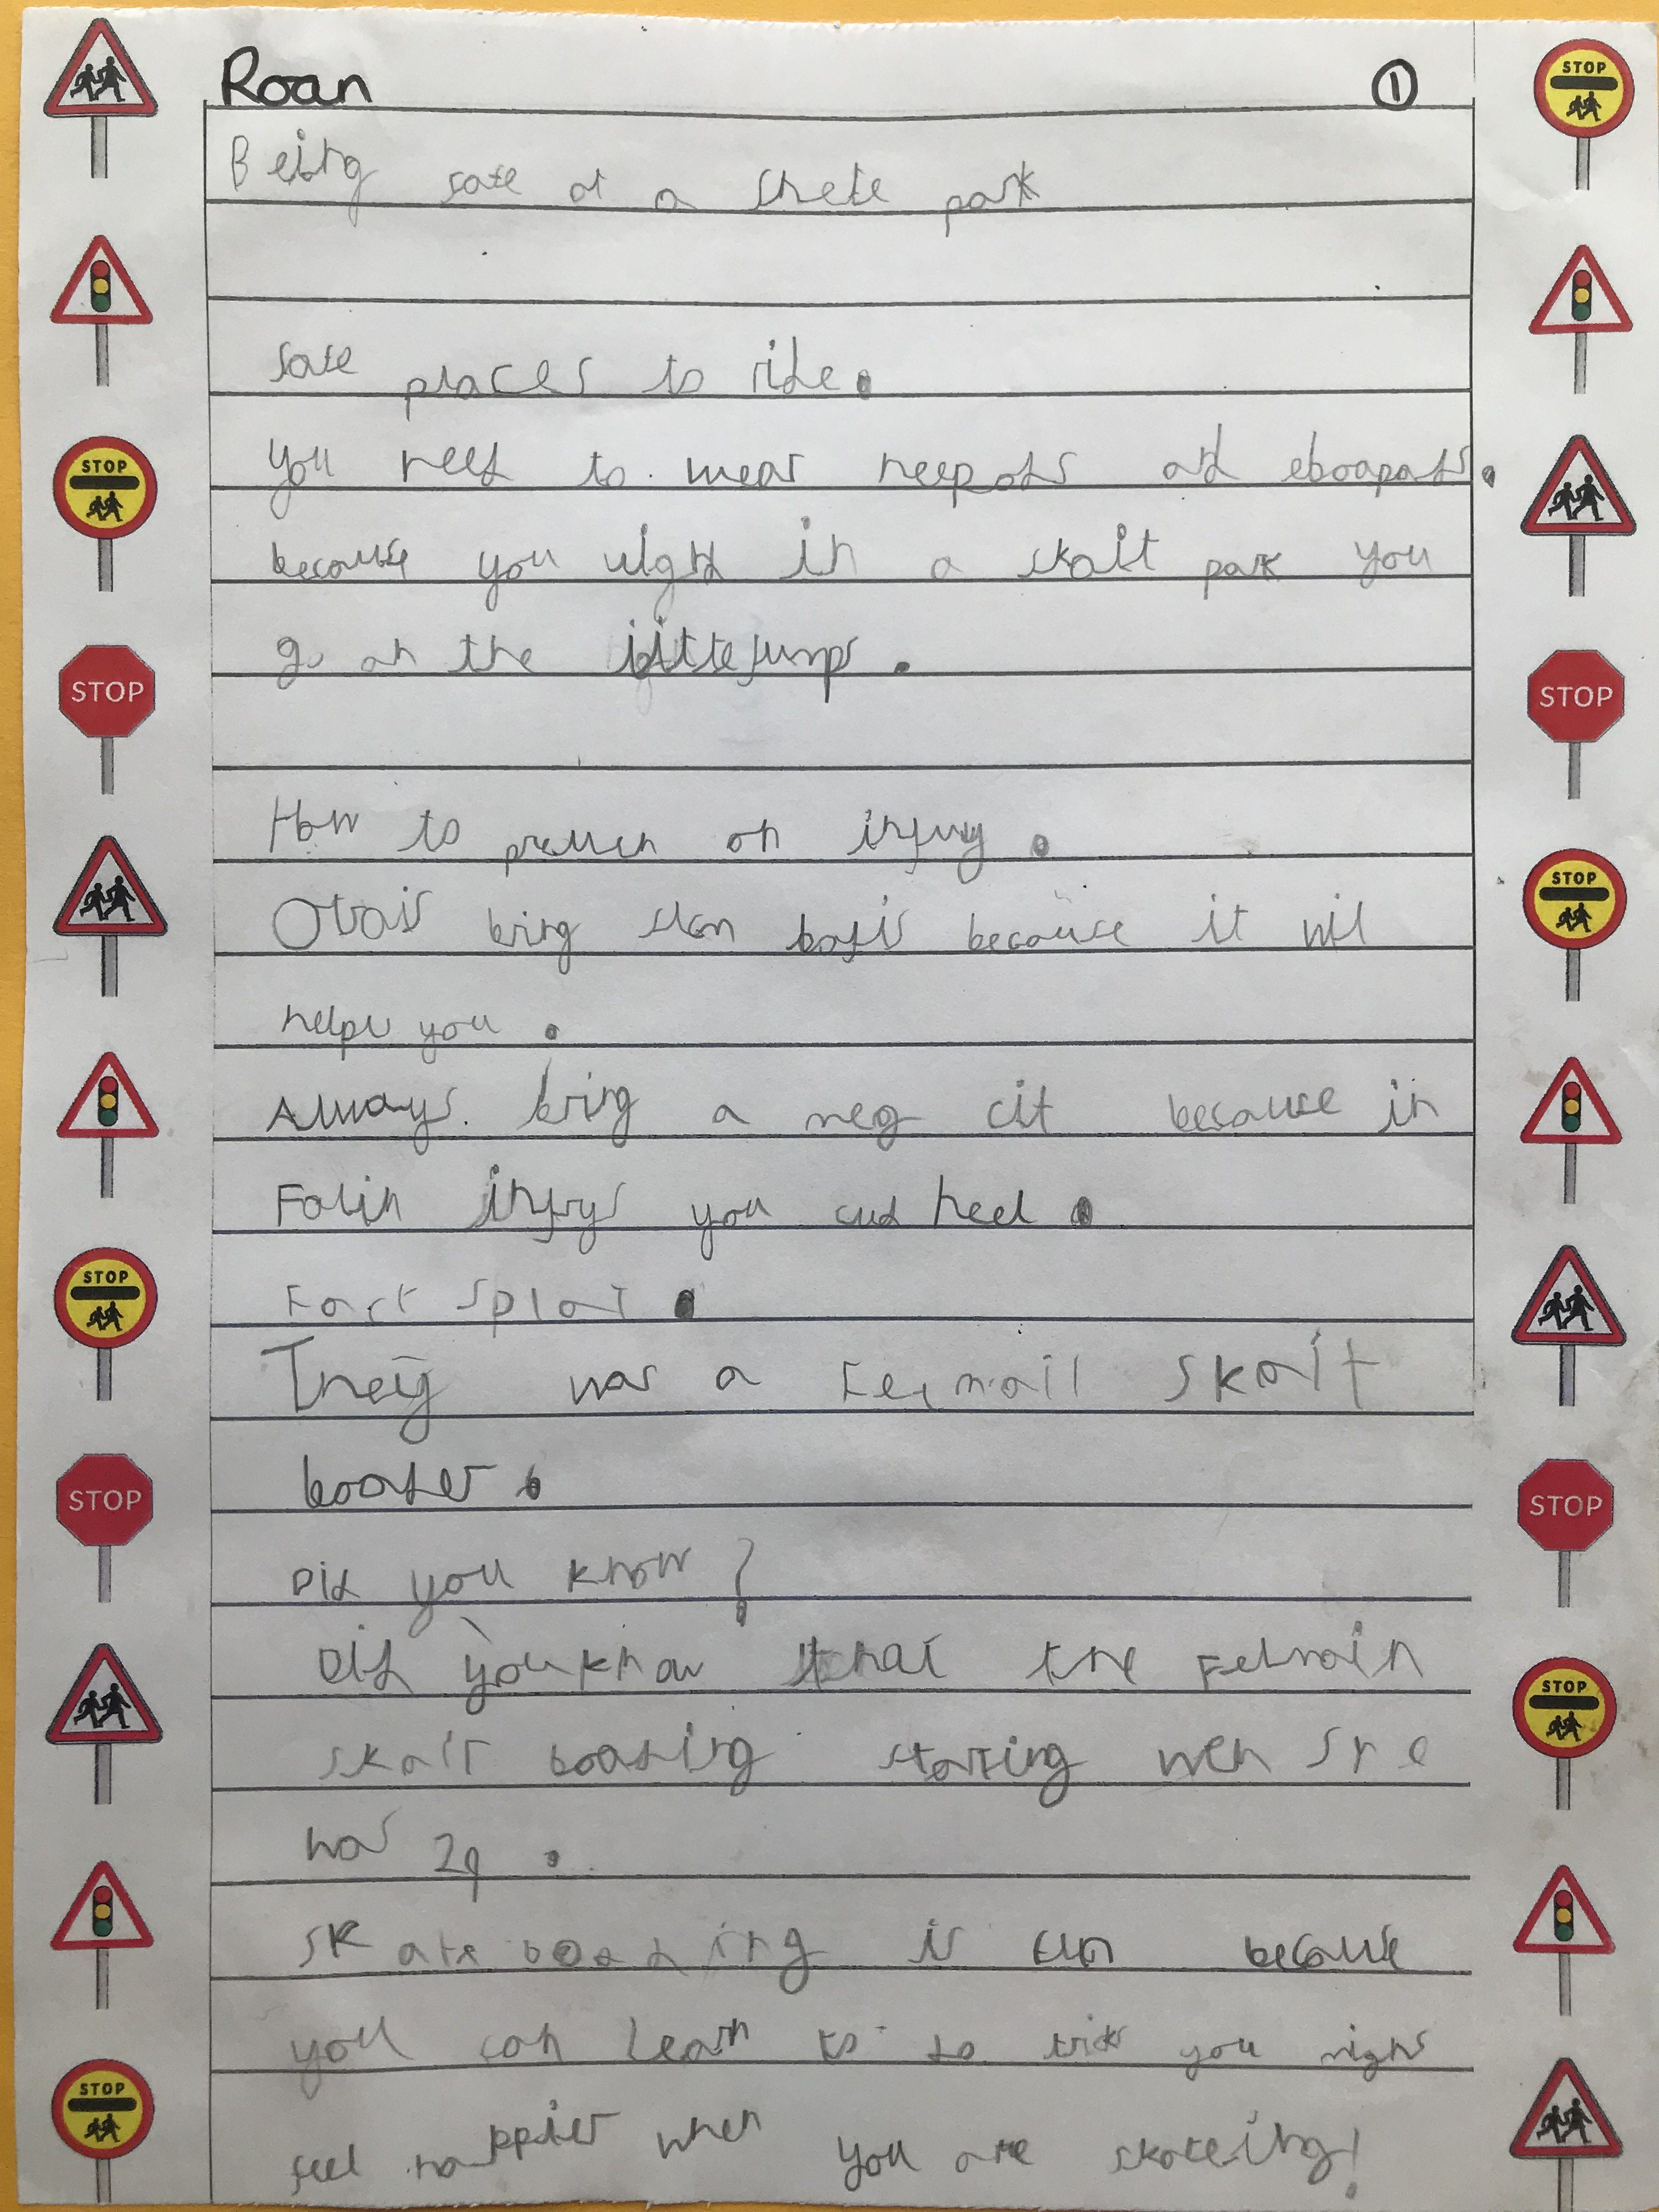 Roan ①
Being safe at a skete park
safe places to ride.
you need to wear neepads and eboapads.
because you might in a skait park you
go on the little jumps.
How to preven an injury.
Olwais bring slon bodis because it wil
helps you.
Always bring a meg cit because in
Falin injrys you cud heel.
Fact splat.
They was a Feymail skait
boarder.
Did you know?
Did you know that the Felmain
skait boarding starting wen she
was 29.
Skateboading is fun because
you can learn to do tricks you might
feel happier when you are skateing!
STOP
STOP
STOP
STOP
STOP
STOP
STOP
STOP
STOP
STOP
STOP